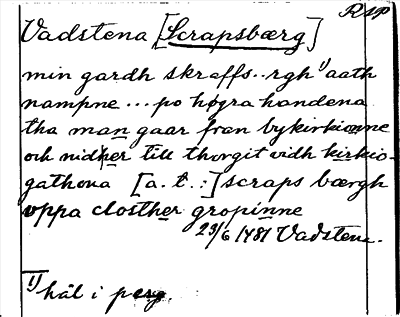 RAP
Vadstena [Scrapsbærg]
min gardh skraffs..rgh 1) aath
nampne ... po høgra handena
tha man gaar fran bykirkionne
och nidher till thorgit vidh kirkio-
gathona [a. t. :] scraps bærgh
vppa closther gropinne
23/6 1481 Vadstena.
1) hål i perg.